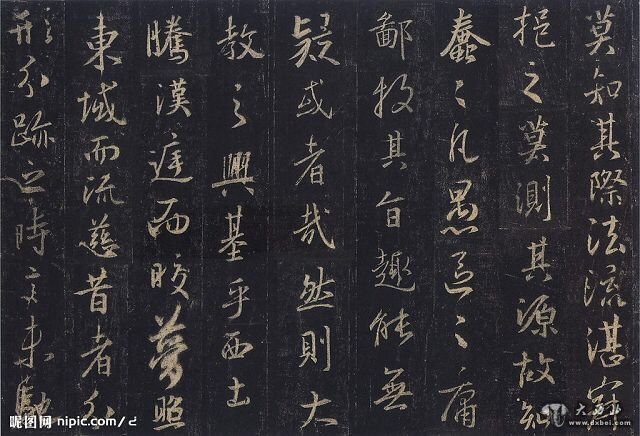 莫知其際法流湛寂
挹之莫測其源故知
蠢蠢凡愚區區庸
鄙投其旨趣能無
疑或者哉然則大
教之興基乎西土
騰漢庭而皎夢照
東域而流慈昔者分
形分跡之時言未馳
昵图网 nipic.com/
www.dxbei.com